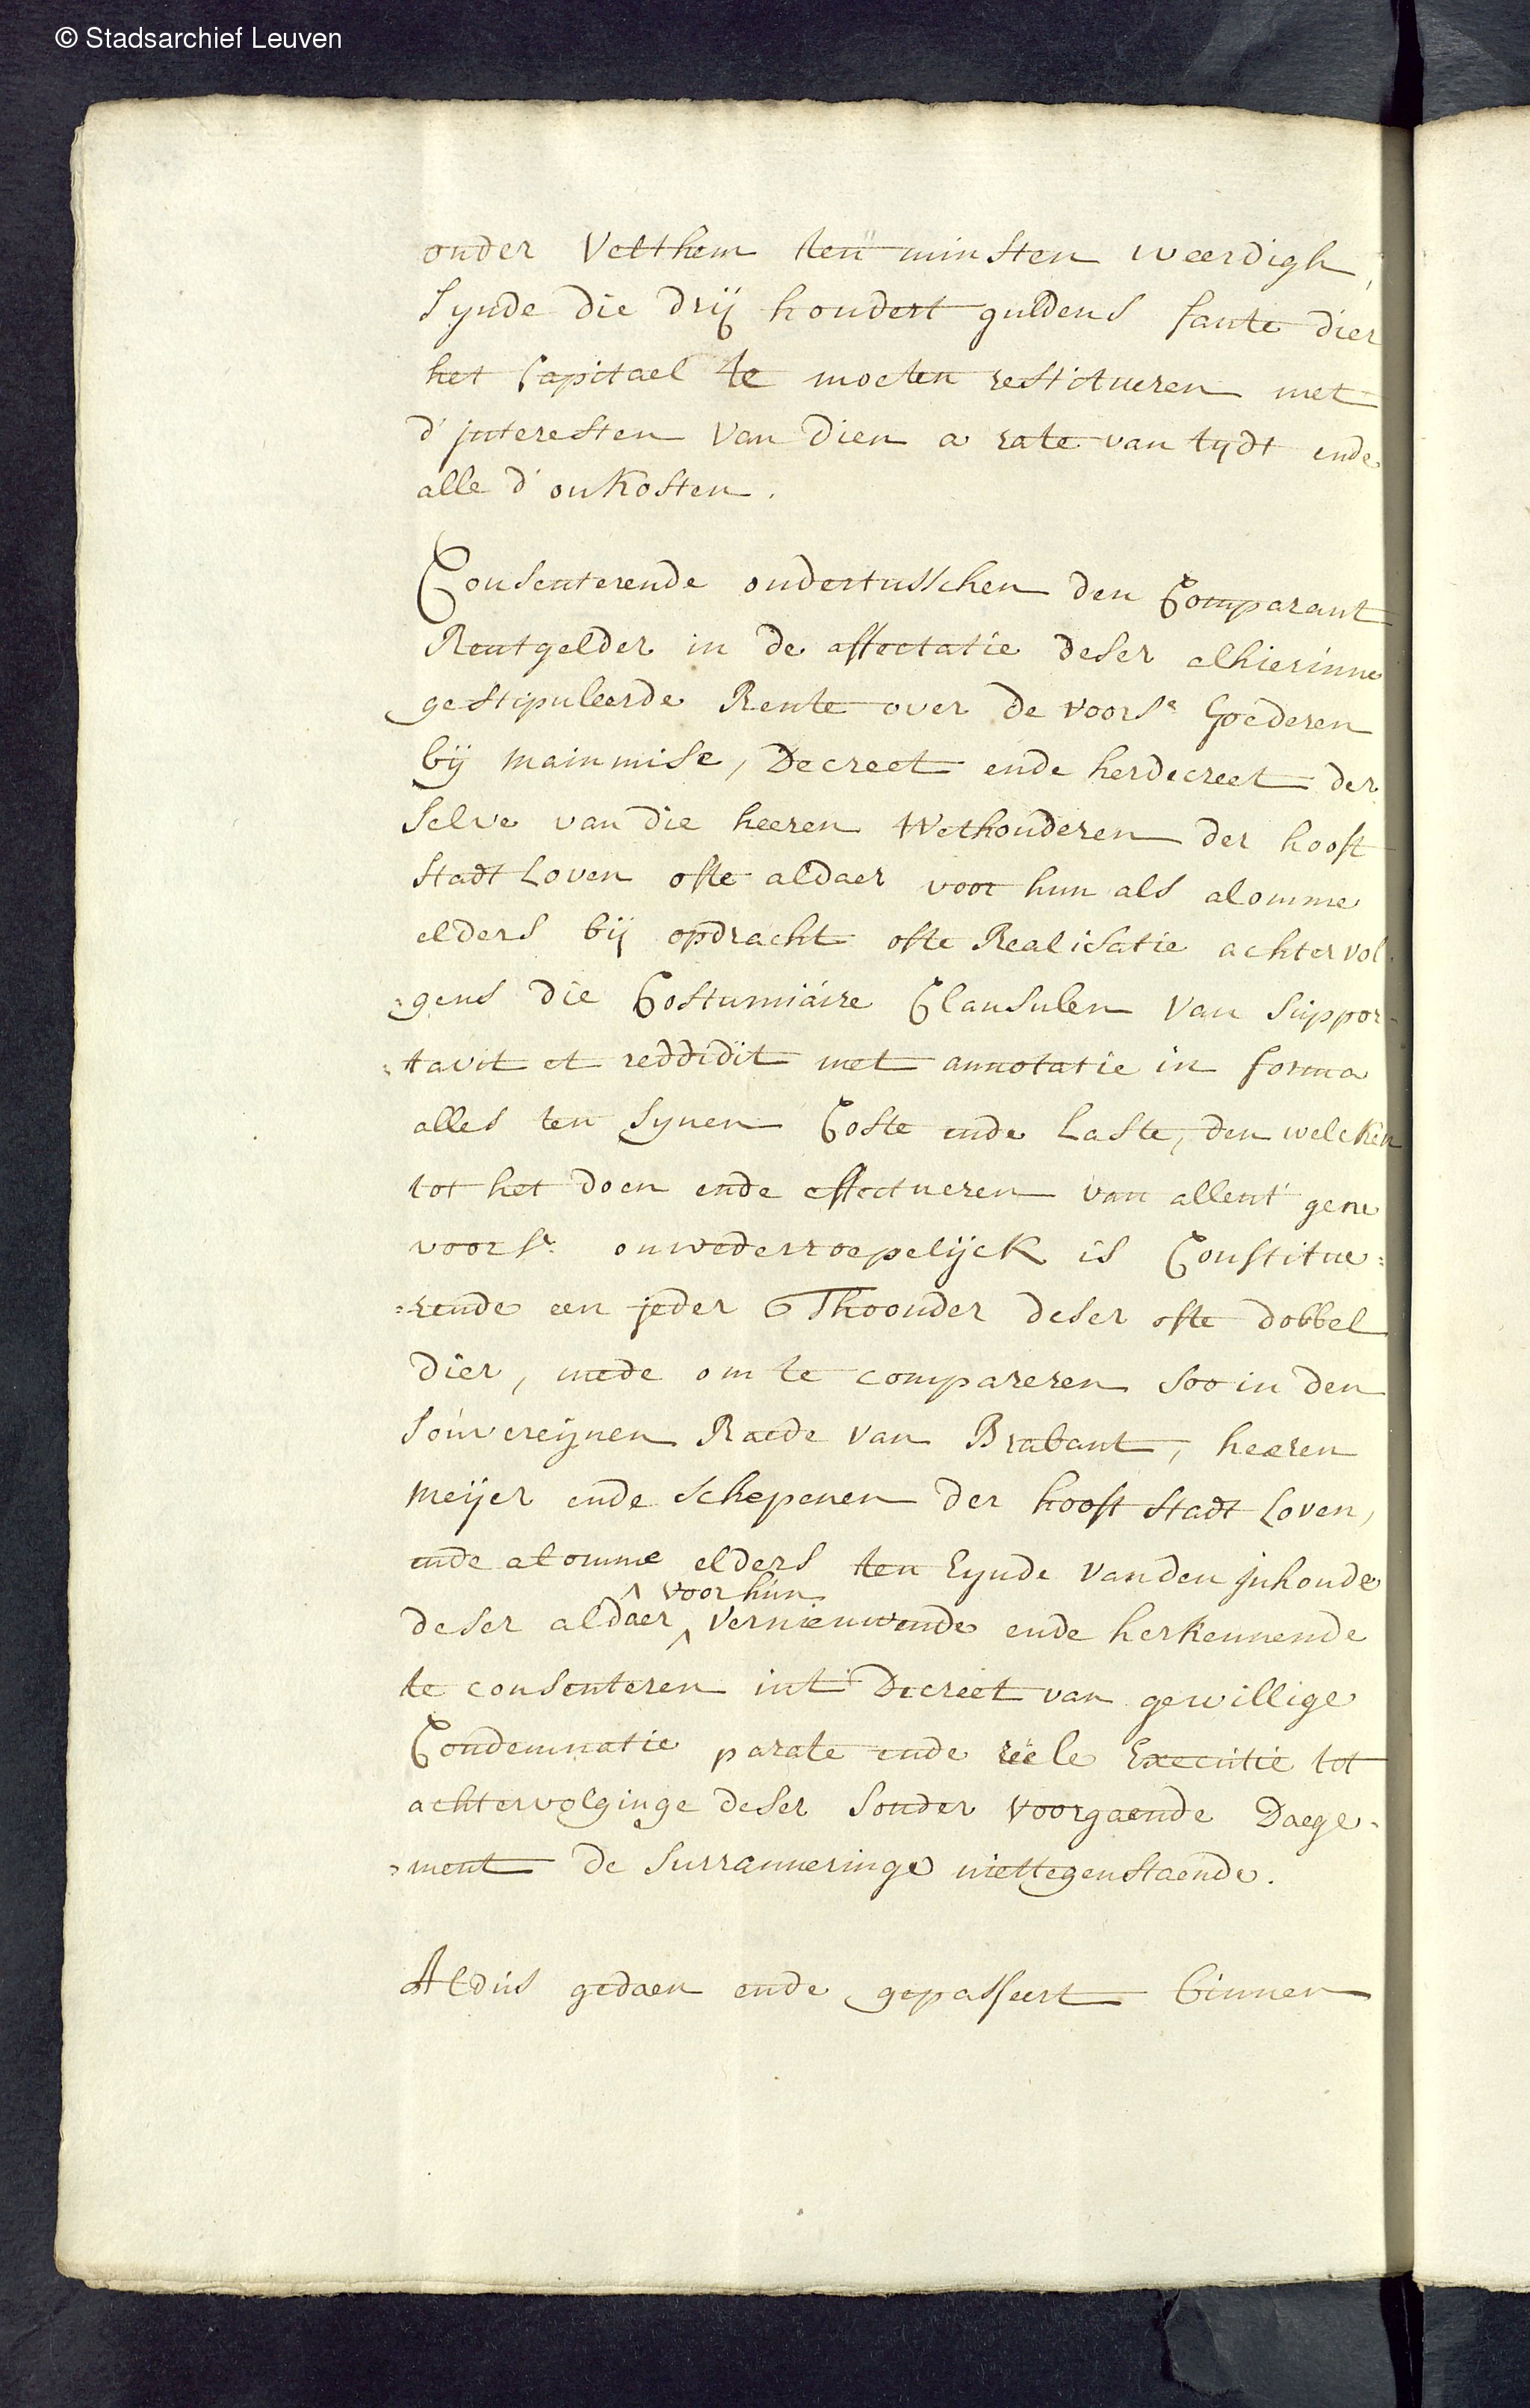 © Stadsarchief Leuven
onder Velthem ten minsten weerdigh,
synde die drij hondert guldens faute dier
het Capitael te moeten restitueren met
d'jnteresten van dien a rate van tydt ende
alle d'onkosten.
Consenterende ondertusschen den Comparant
Rentgelder in de affectatie deser alhierinne
gestipuleerde Rente over de voors.e Goederen
bij mainmise, Decreet ende herdecreet der
selve van die heeren Wethouderen der hooft
stadt Loven ofte aldaer voor hun als alomme
elders bij opdracht ofte Realisatie achtervol-
=gens die Costumiaire Clausulen van suppor-
=tavit et reddidit met annotatie in forma
alles ten synen Coste ende Laste, den welcken
tot het doen ende effectueren van allent' gene
voors.e onwederroepelijck is Constitue=
=rende een jeder Thoonder deser ofte dobbel
dier, mede om te compareren soo in den
souvereijnen Raede van Brabant, heeren
meijer ende schepenen der hooft stadt Loven,
ende alomme elders ten Eynde van den jnhoude
^ voor hun
deser aldaer ^ vernieuwende ende herkennende
te consenteren int' Decreet van gewillige
Condemnatie parate ende reële Executie tot
achtervolginge deser sonder voorgaende Daege=
=ment de surranneringe niettegenstaende.
Aldus gedaen ende gepasseert binnen